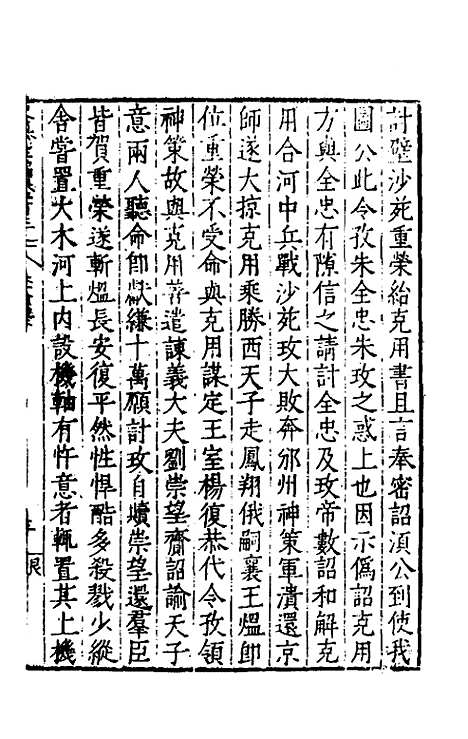 討壁沙苑重榮紿克用書且言奉密詔湏公到使我
圖公此令孜朱全忠朱玫之惑上也因示僞詔克用
方與全忠有隙信之請討全忠及玫帝數詔和解克
用合河中兵戰沙苑玫大敗奔邠州神策軍潰還京
師遂大掠克用乘勝西天子走鳳翔俄嗣襄王熅卽
位重榮不受命與克用謀定王室楊復恭代令孜領
神策故與克用善遣諫義大夫劉崇望齎詔諭天子
意兩人聽命卽獻縑十萬願討玫自贖崇望還羣臣
皆賀重榮遂斬熅長安復平然性悍酷多殺戮少縱
舍嘗置大木河上内設機軸有忤意者輒置其上機